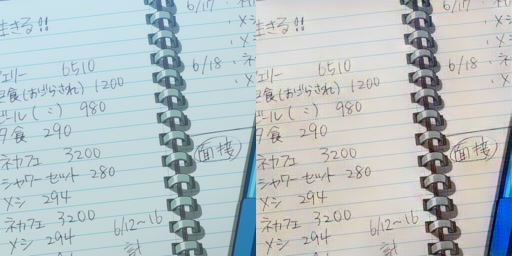 生きる!!
ェリー 6510
食(おばらされ) 1200
ビル(〃) 980
夕食 290
ネカフェ 3200
シャワーセット 280
メシ 294
ネカフェ 3200
メシ 294
6/12~16
計
6/17
・メ
6/18・ネ
・メ
面接
生きる!!
ェリー 6510
食(おばらされ) 1200
ビル(〃) 980
夕食 290
ネカフェ 3200
シャワーセット 280
メシ 294
ネカフェ 3200
メシ 294
6/12~16
計
6/17
・メシ
6/18・ネ
・メ
面接